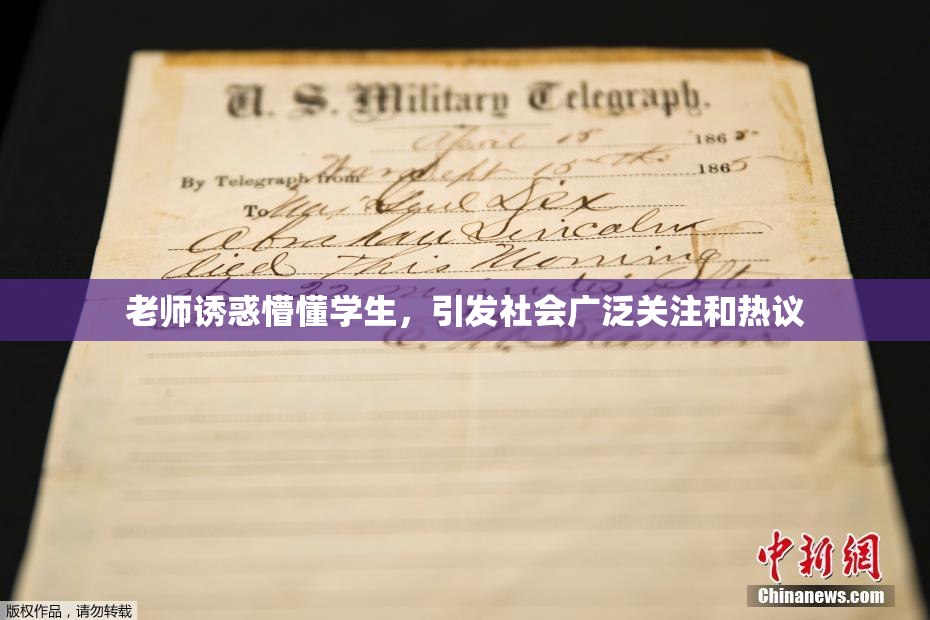 U. S. Military Telegraph.
April 15 1865
By Telegraph from War Dept 15th 1865
To Maj Genl Dix
Abraham Lincoln
died This Morning
22 minutes after
老师诱惑懵懂学生，引发社会广泛关注和热议
中新网
Chinanews.com
版权作品，请勿转载